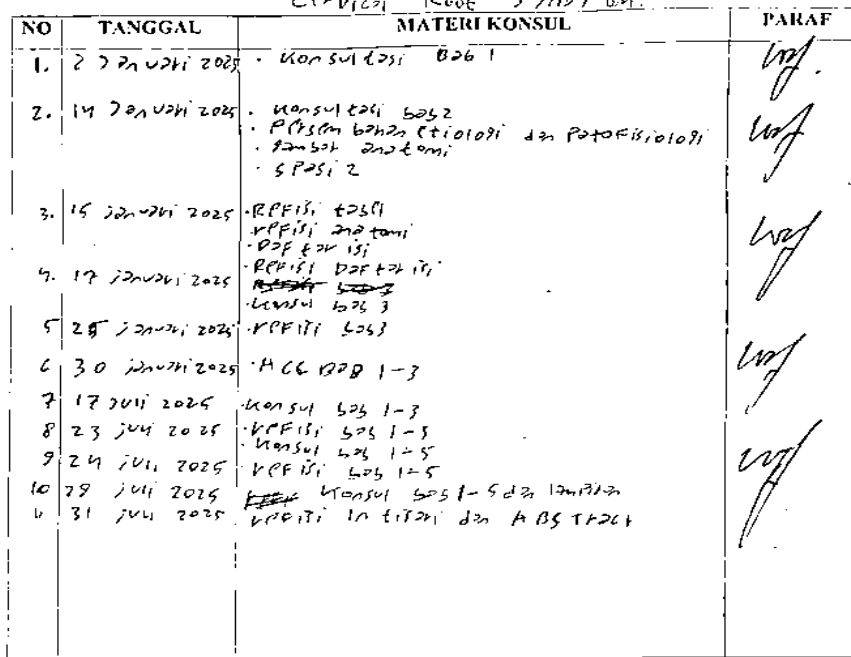 Cervical Root Syndrom.
NO TANGGAL MATERI KONSUL PARAF
1. 2 Januari 2025 · Konsultasi Bab 1
2. 14 Januari 2025 · Konsultasi bab 2
· Persembahan etiologi dan Patofisiologi
· gambar anatomi
· Spasi 2
3. 15 januari 2025 · Refisi tabel
· refisi anatomi
· Daftar isi
4. 17 januari 2025 · Refisi Daftar isi
· Konsul bab 3
5 25 januari 2025 · refisi bab 3
6 30 januari 2025 · ACC BAB 1-3
7 17 Juli 2025 · Konsul bab 1-3
8 23 juli 2025 · refisi bab 1-5
· Konsul bab 1-5
9 24 juli 2025 · refisi bab 1-5
10 29 juli 2025 Konsul bab 1-5 dan lampiran
11 31 juli 2025 refisi Intisari dan ABSTract